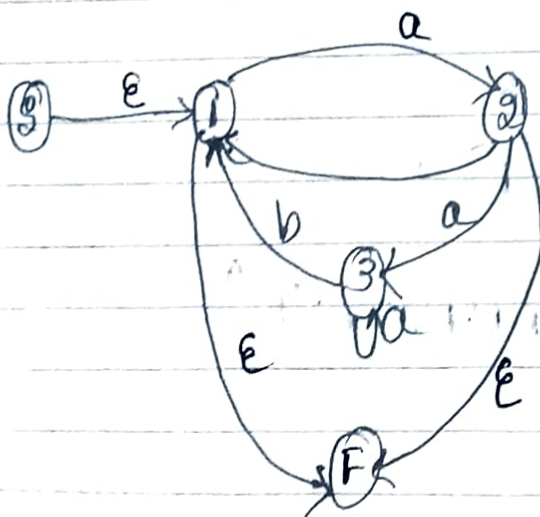 a
S ε 1 2
b a
3
a
ε ε
F